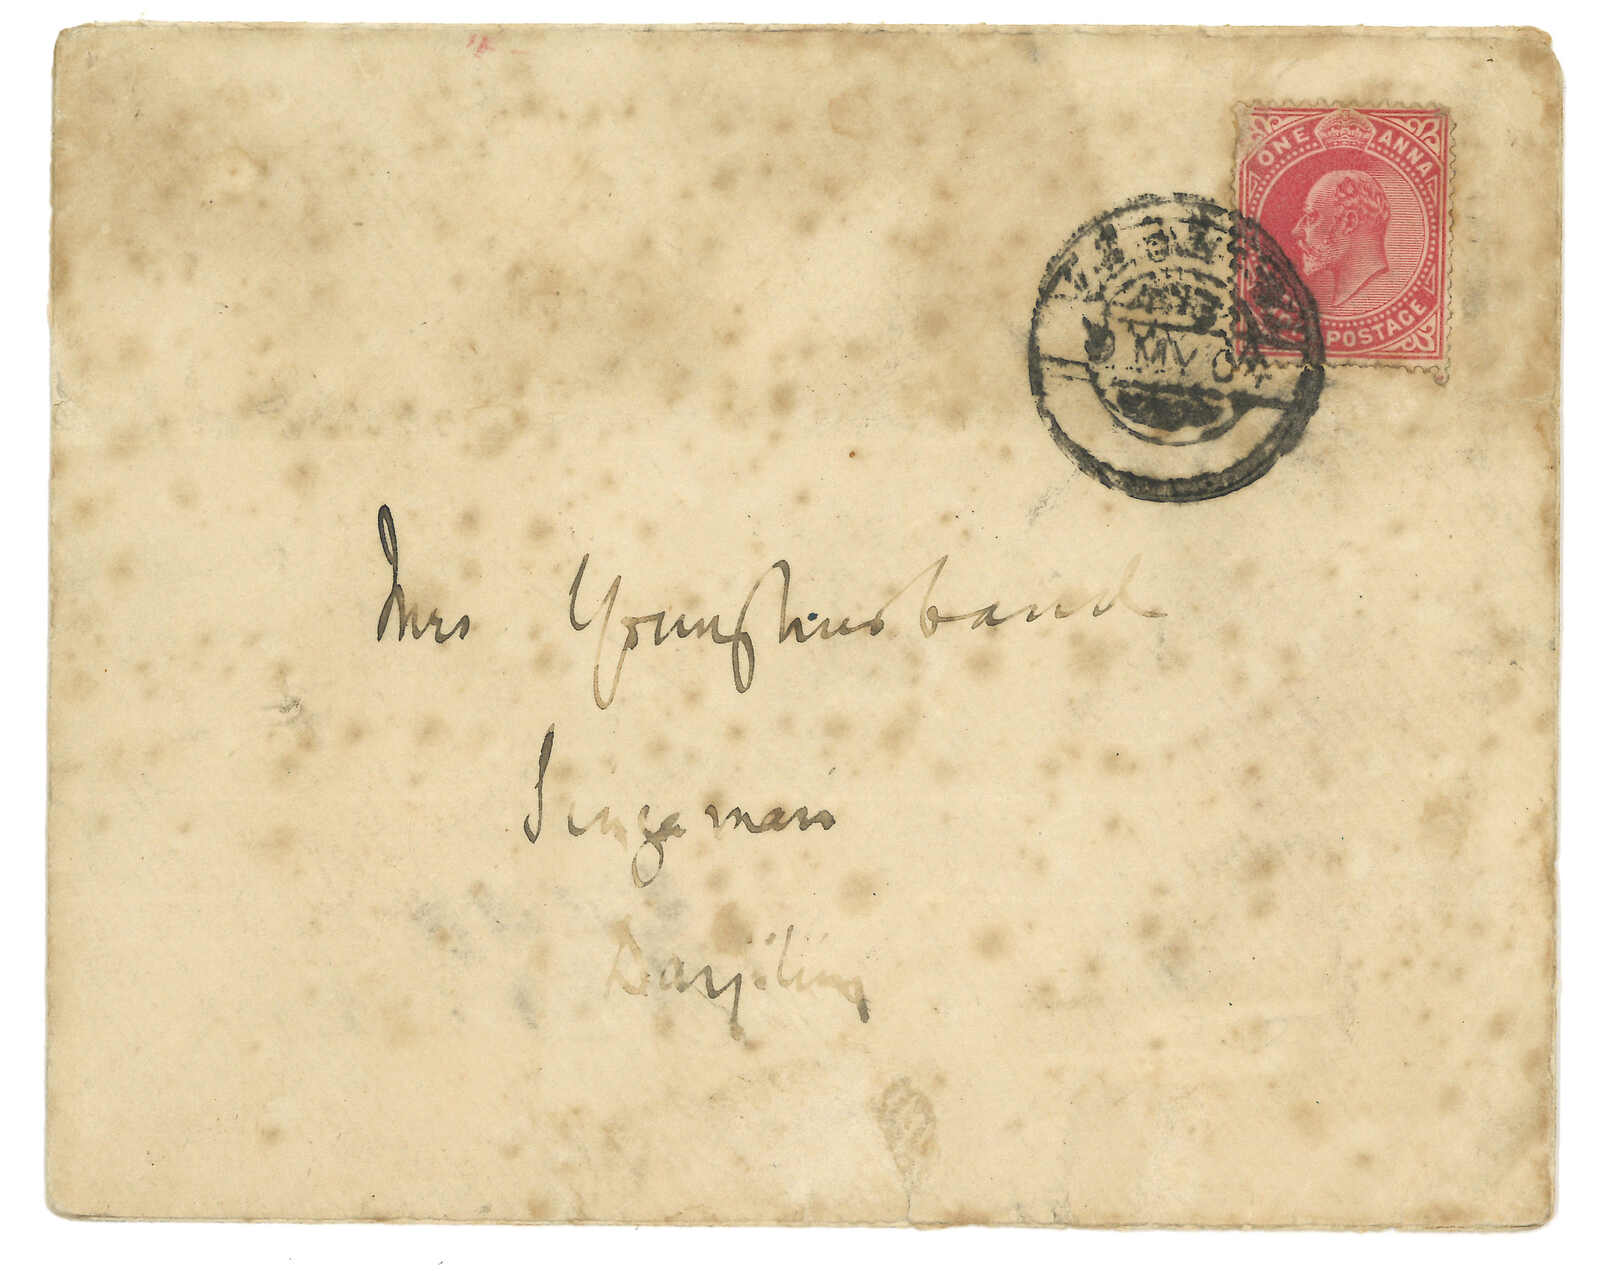 ONE ANNA
POSTAGE
MY 04
Mrs Younghusband
Singamari
Darjiling